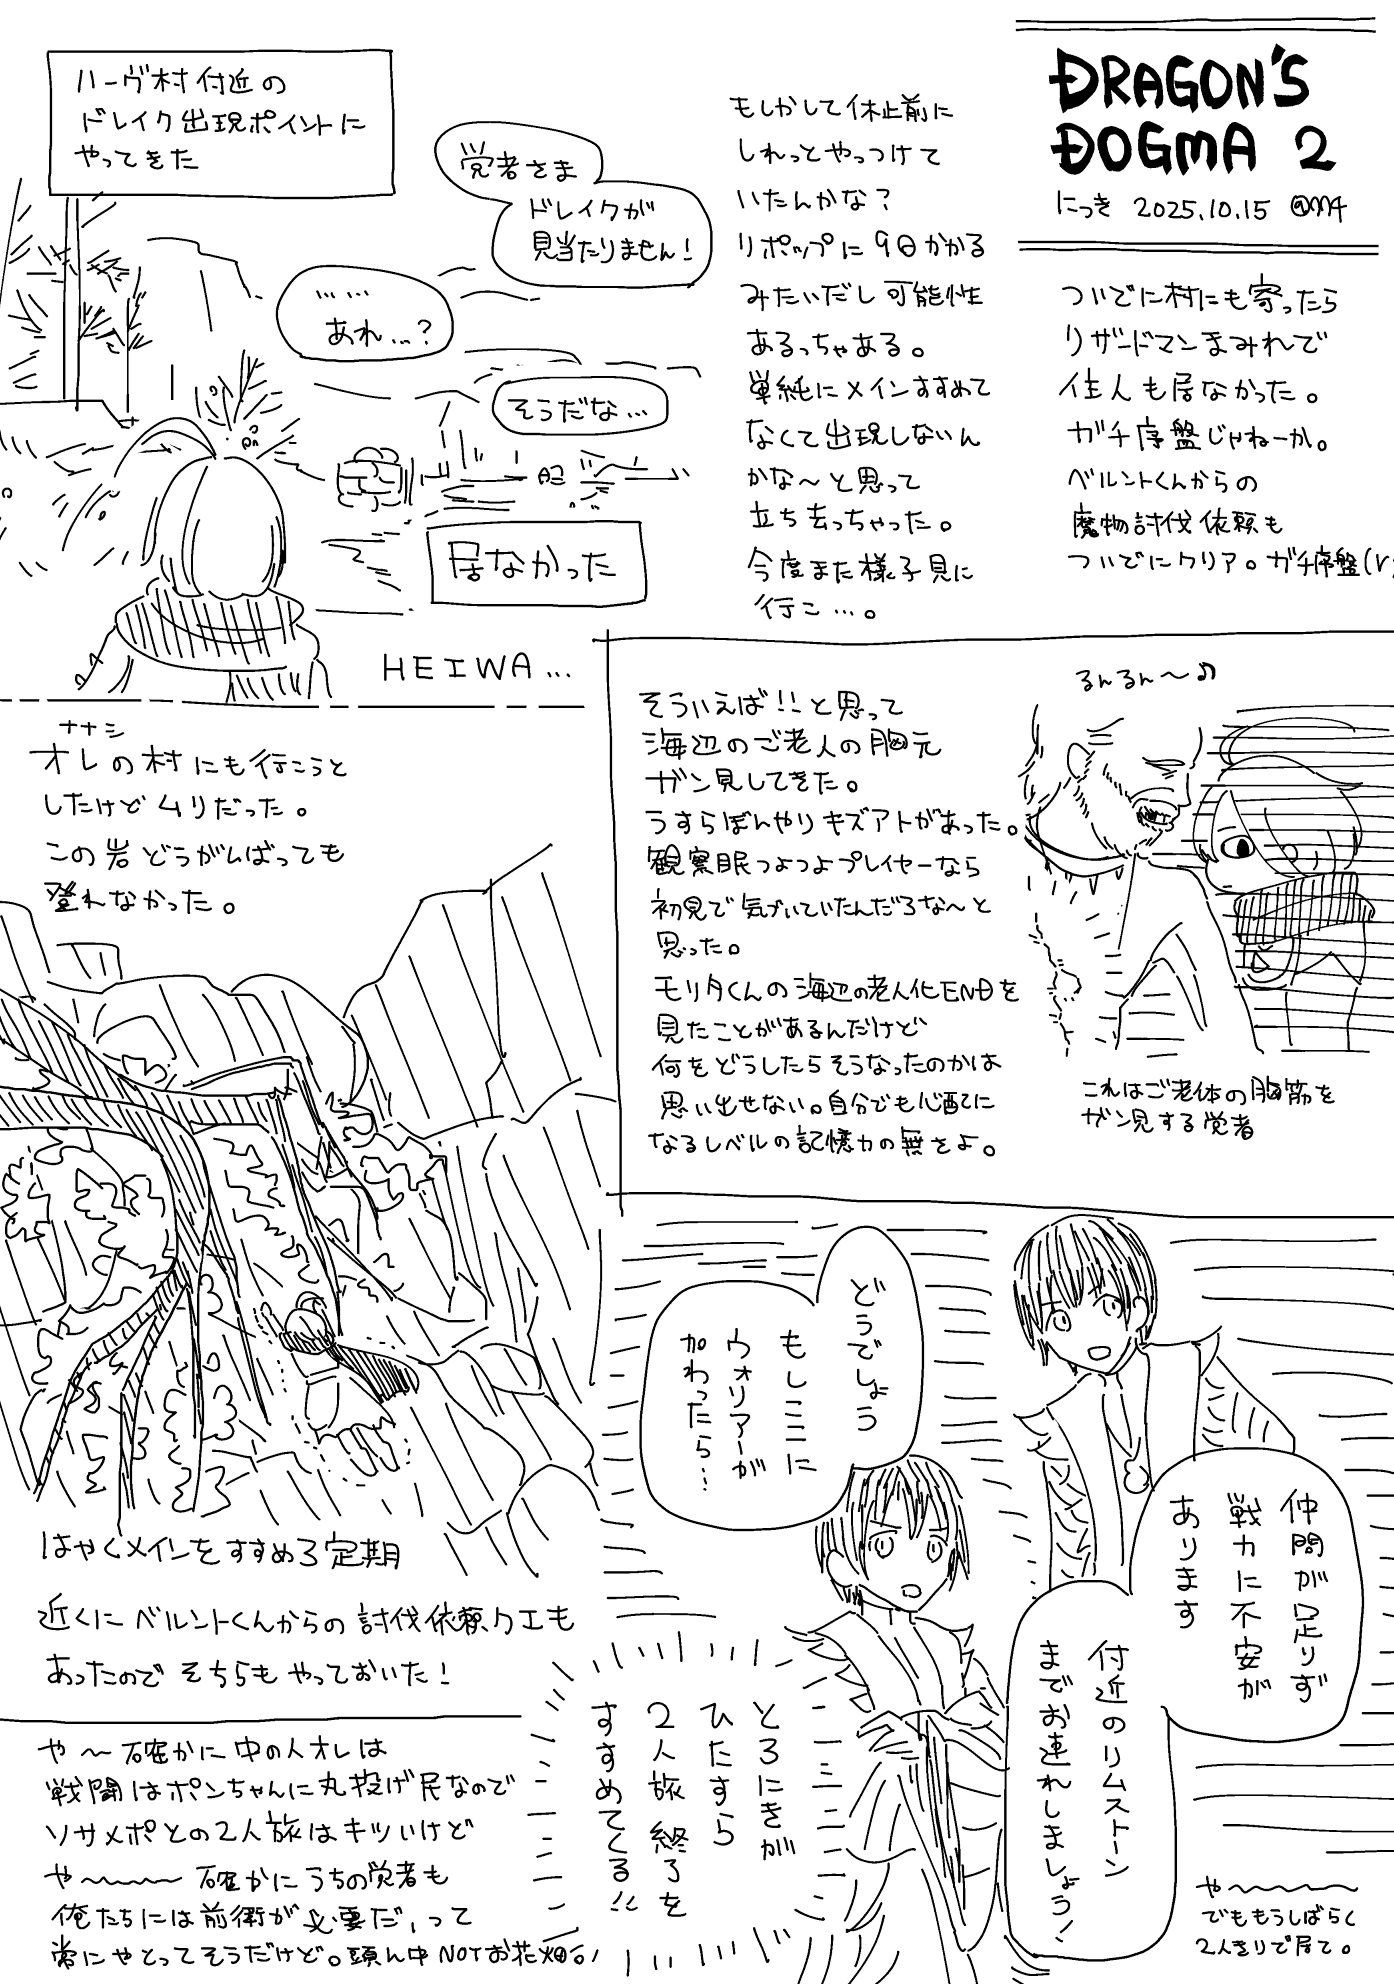 DRAGON'S
DOGMA 2
にっき 2025.10.15 @M4
ハーヴ村付近の
ドレイク出現ポイントに
やってきた
覚者さま
ドレイクが
見当たりません!
……
あれ…?
そうだな…
居なかった
HEIWA…
もしかして休止前に
しれっとやっつけて
いたんかな?
リポップに9日かかる
みたいだし可能性
あるっちゃある。
単純にメインすすめて
なくて出現しないん
かな〜と思って
立ち去っちゃった。
今度また様子見に
行こ…。
ついでに村にも寄ったら
リザードマンまみれで
住人も居なかった。
ガチ序盤じゃねーか。
ベルントくんからの
魔物討伐依頼も
ついでにクリア。ガチ序盤(ry
ナナシ
オレの村にも行こうと
したけどムリだった。
この岩どうがんばっても
登れなかった。
はやくメインをすすめろ定期
近くにベルントくんからの討伐依頼クエも
あったのでそちらもやっておいた!
そういえば!!と思って
海辺のご老人の胸元
ガン見してきた。
うすらぼんやりキズアトがあった。
観察眼つよつよプレイヤーなら
初見で気づいていたんだろな〜と
思った。
モリタくんの海辺の老人化ENDを
見たことがあるんだけど
何をどうしたらそうなったのかは
思い出せない。自分でも心配に
なるレベルの記憶力の無さよ。
るんるん〜♪
これはご老体の胸筋を
ガン見する覚者
仲間が足りず
戦力に不安が
あります
付近のリムストーン
までお連れしましょう!
どうでしょう
もしここに
ウォリアーが
加わったら…
とろにきが
ひたすら
2人旅終了を
すすめてくる!!
や〜確かに中の人オレは
戦闘はポンちゃんに丸投げ民なので
ソサメポとの2人旅はキツいけど
や〜〜〜〜確かにうちの覚者も
俺たちには前衛が必要だ、って
常にやとってそうだけど。頭ん中NOTお花畑い
や〜〜〜〜〜
でももうしばらく
2人きりで居て。